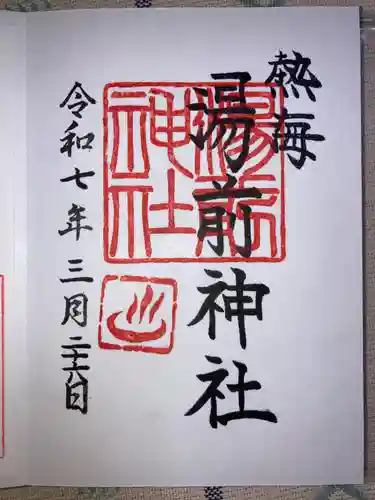 熱海
湯前神社
令和七年三月二十六日
湯前神社